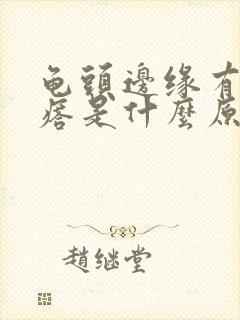 龟頭邊缘有
痞是什麼原
趙继堂